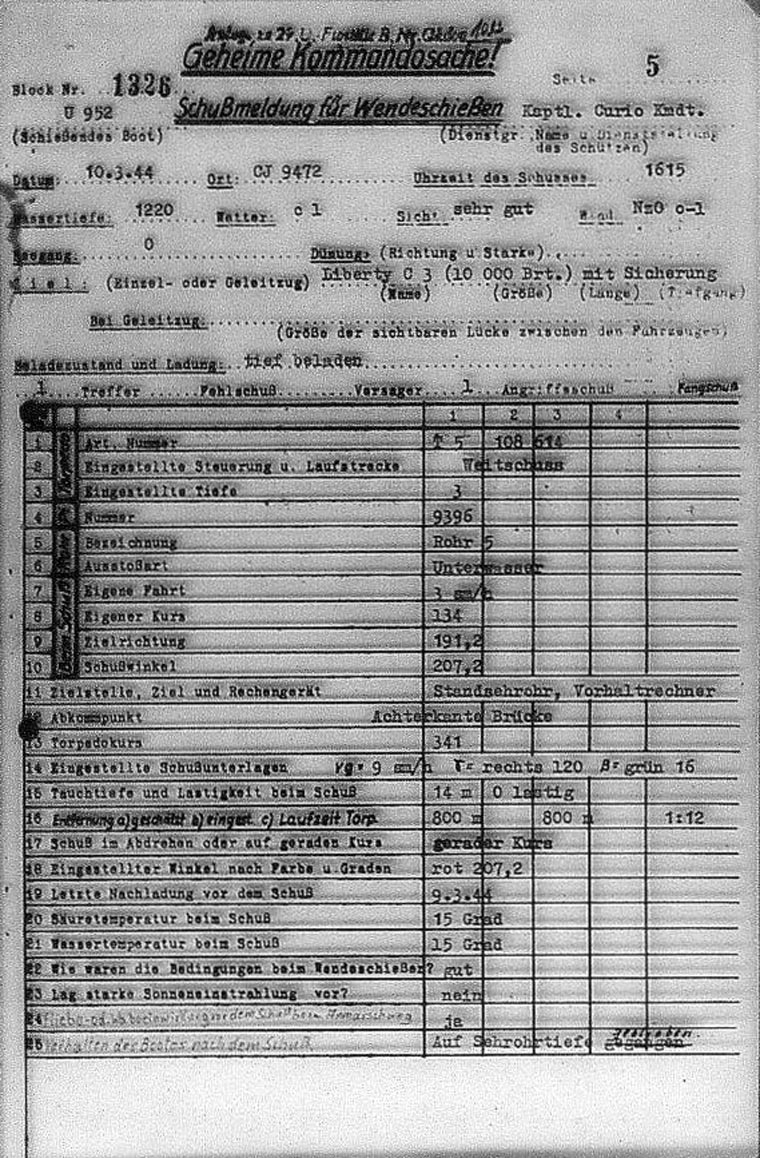 Geheime Kommandosache!
Block Nr. 1326 Seite 5
U 952 Schußmeldung für Wendeschießen Kaptl. Curio Kmdt.
(Schießendes Boot) (Dienstgr. Name u Dienststellung
des Schützen)
Datum: 10.3.44 Ort: CJ 9472 Uhrzeit des Schusses 1615
Wassertiefe: 1220 Wetter: c 1 Sicht sehr gut Wind NzO 0-1
Seegang: 0 Dünung: (Richtung u Stärke)
Ziel: (Einzel- oder Geleitzug) Liberty C 3 (10 000 Brt.) mit Sicherung
(Name) (Größe) (Länge) (Tiefgang)
Bei Geleitzug:
(Größe der sichtbaren Lücke zwischen den Fahrzeugen)
Beladezustand und Ladung: tief beladen
1 Treffer Fehlschuß Versager 1 Angriffsschuß Fangschuß
1 2 3 4
1 Art. Nummer T 5 108 614
2 Eingestellte Steuerung u. Laufstrecke Weitschuss
3 Eingestellte Tiefe 3
4 Nummer 9396
5 Bezeichnung Rohr 5
6 Ausstoßart Unterwasser
7 Eigene Fahrt 3 sm/h
8 Eigener Kurs 134
9 Zielrichtung 191,2
10 Schußwinkel 207,2
11 Zielstelle, Ziel und Rechengerät Standsehrohr, Vorhaltrechner
12 Abkommpunkt Achterkante Brücke
13 Torpedokurs 341
14 Eingestellte Schußunterlagen vg= 9 sm/h γ= rechts 120 β= grün 16
15 Tauchtiefe und Lastigkeit beim Schuß 14 m 0 lastig
16 Entfernung a) geschätzt b) eingest. c) Laufzeit Torp. 800 m 800 m 1:12
17 Schuß im Abdrehen oder auf geraden Kurs gerader Kurs
18 Eingestellter Winkel nach Farbe u. Graden rot 207,2
19 Letzte Nachladung vor dem Schuß 9.3.44
20 Säuretemperatur beim Schuß 15 Grad
21 Wassertemperatur beim Schuß 15 Grad
22 Wie waren die Bedingungen beim Wendeschießen? gut
23 Lag starke Sonneneinstrahlung vor? nein
24 ja
25 Verhalten des Bootes nach dem Schuß Auf Sehrohrtiefe geblieben gegangen